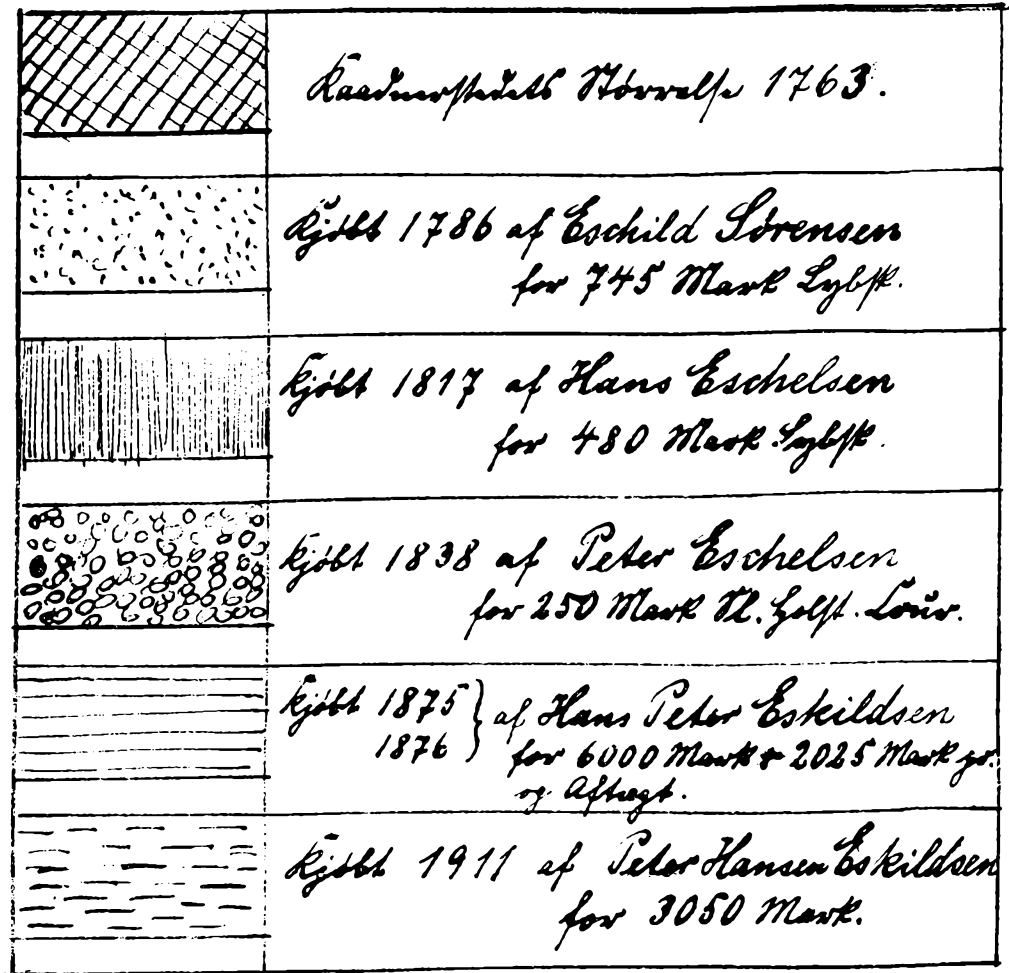 Kaadnerstedets Størrelse 1763.
Kjöbt 1786 af Eschild Sörensen
for 745 Mark Lybsk.
Kjöbt 1817 af Hans Eschelsen
for 480 Mark Lybsk.
Kjöbt 1838 af Peter Eschelsen
for 250 Mark Sl. Holst. Cour.
Kjöbt 1875 } af Hans Peter Eskildsen
1876 } for 6000 Mark + 2025 Mark pr.
og Aftægt.
Kjöbt 1911 af Peter Hansen Eskildsen
for 3050 Mark.